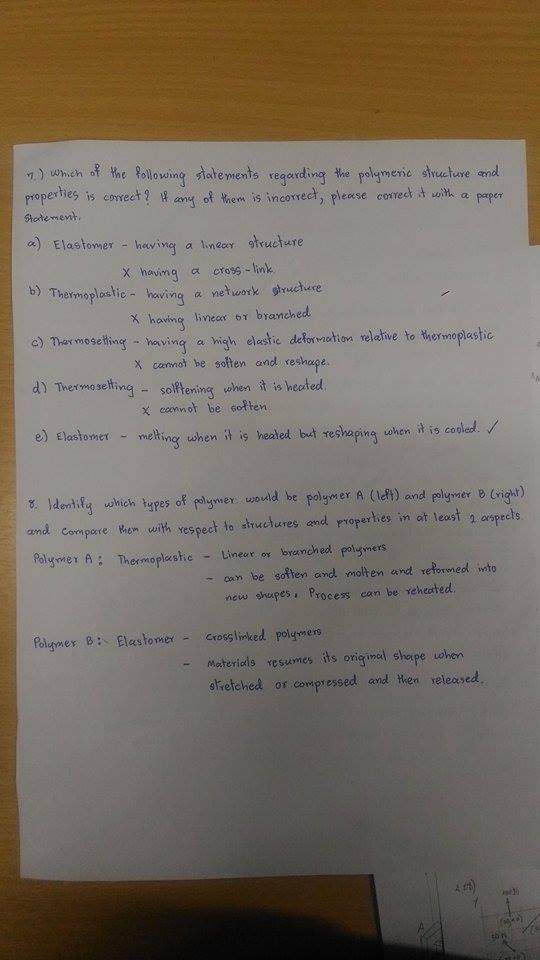 7.) Which of the following statements regarding the polymeric structure and
properties is correct? If any of them is incorrect, please correct it with a paper
statement.
a) Elastomer - having a linear structure
X having a cross-link.
b) Thermoplastic - having a network structure
X having linear or branched
c) Thermosetting - having a high elastic deformation relative to thermoplastic
X cannot be soften and reshape.
d) Thermosetting - solftening when it is heated.
X cannot be soften
e) Elastomer - melting when it is heated but reshaping when it is cooled. ✓
8. Identify which types of polymer would be polymer A (left) and polymer B (right)
and compare them with respect to structures and properties in at least 2 aspects.
Polymer A: Thermoplastic - Linear or branched polymers
- can be soften and molten and reformed into
new shapes. Process can be reheated.
Polymer B: Elastomer - Crosslinked polymers
- Materials resumes its original shape when
stretched or compressed and then released.
A
Y